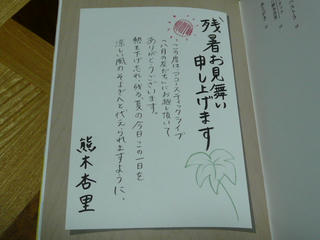 残暑お見舞い
申し上げます
この度は、アコースティックライブ
「八月の友だち」にお越し頂いて
ありがとうございます。
熱を下げ忘れ、残る、夏の今日この一日を
涼しい風のそよぎへと代えられますように、
熊木杏里